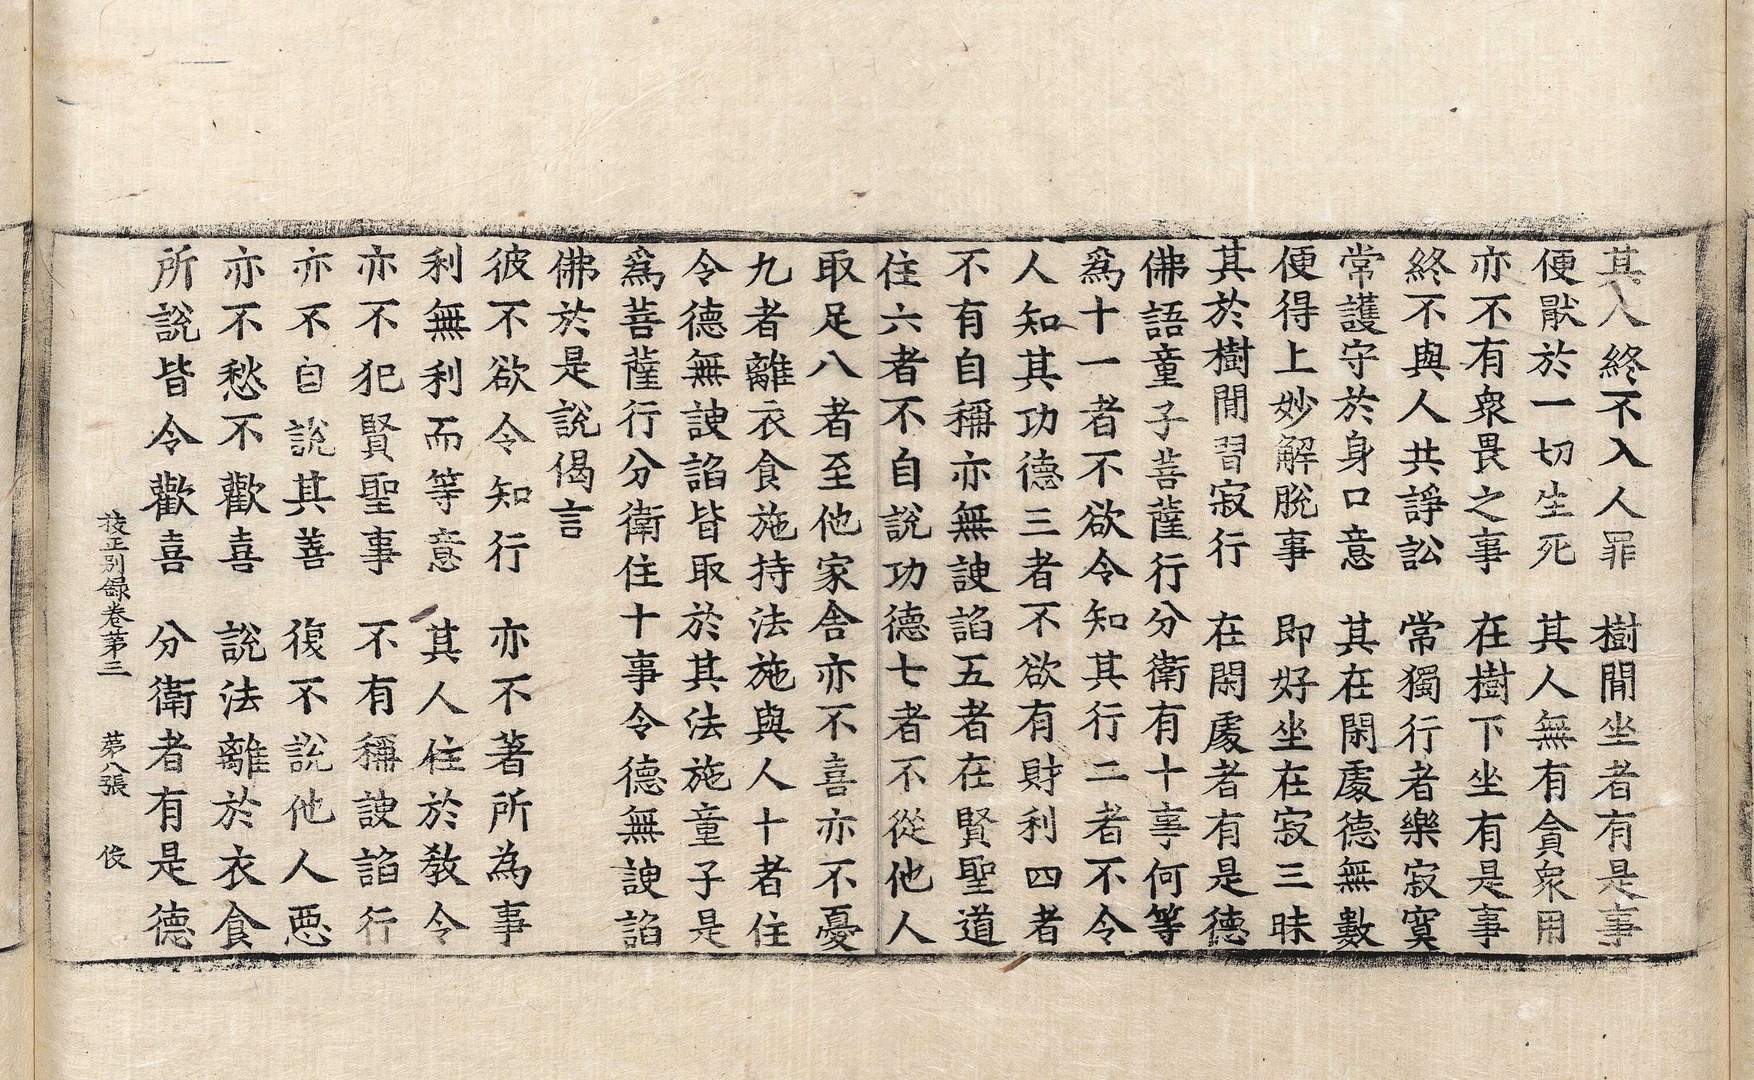 其人終不入人罪　樹間坐者有是事
便猒於一切生死　其人無有貪衆用
亦不有衆畏之事　在樹下坐有是事
終不與人共諍訟　常獨行者樂寂寞
常護守於身口意　其在閑處德無數
便得上妙解脫事　即好坐在寂三昧
其於樹間習寂行　在閑處者有是德
佛語童子菩薩行分衛有十事何等
爲十一者不欲令知其行二者不令
人知其功德三者不欲有財利四者
不有自稱亦無諛諂五者在賢聖道
住六者不自說功德七者不從他人
取足八者至他家舍亦不喜亦不憂
九者離衣食施持法施與人十者住
令德無諛諂皆取於其法施童子是
爲菩薩行分衛住十事令德無諛諂
佛於是說偈言
彼不欲令知行　亦不著所為事
利無利而等意　其人住於教令
亦不犯賢聖事　不有稱諛諂行
亦不自說其善　復不說他人惡
亦不愁不歡喜　說法離於衣食
所說皆令歡喜　分衛者有是德
挍正別錄卷第三　第八張　俊